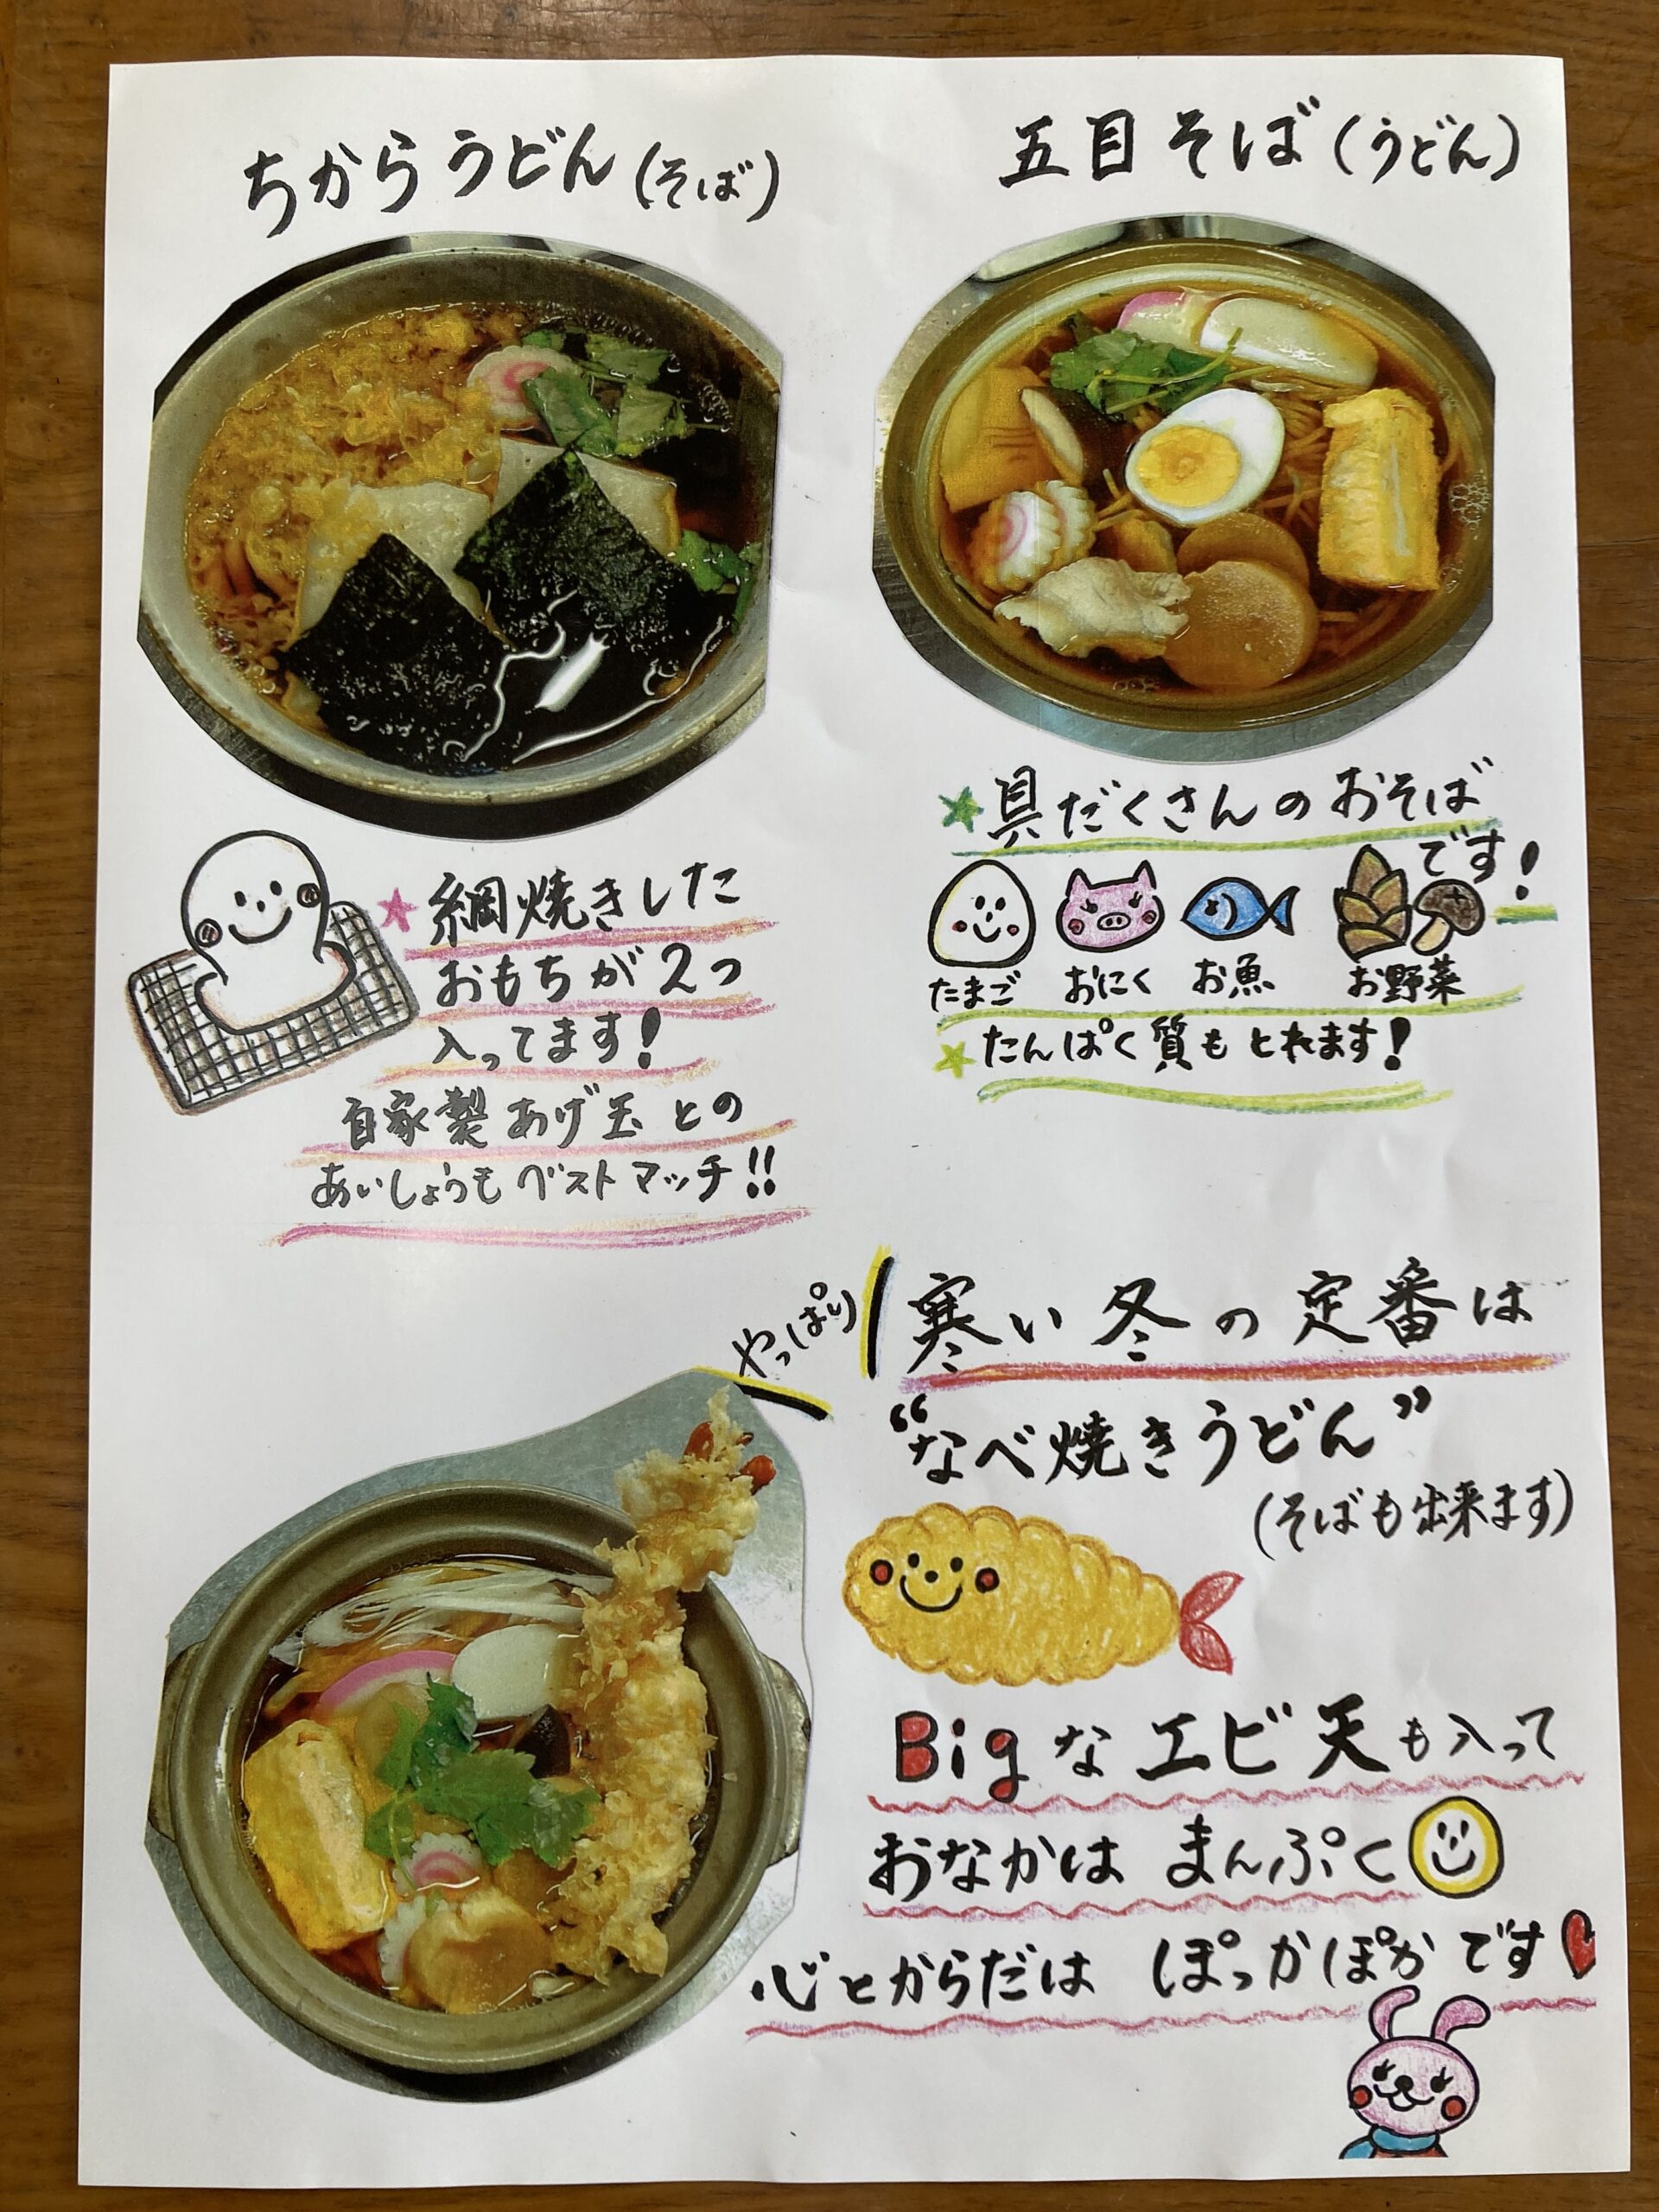 ちからうどん(そば)
★網焼きした
おもちが2つ
入ってます!
自家製あげ玉との
あいしょうもベストマッチ!!
五目そば(うどん)
★具だくさんのおそば
です!
たまご おにく お魚 お野菜
★たんぱく質もとれます!
やっぱり
寒い冬の定番は
“なべ焼きうどん”
(そばも出来ます)
Bigなエビ天も入って
おなかはまんぷく
心とからだは ぽっかぽかです